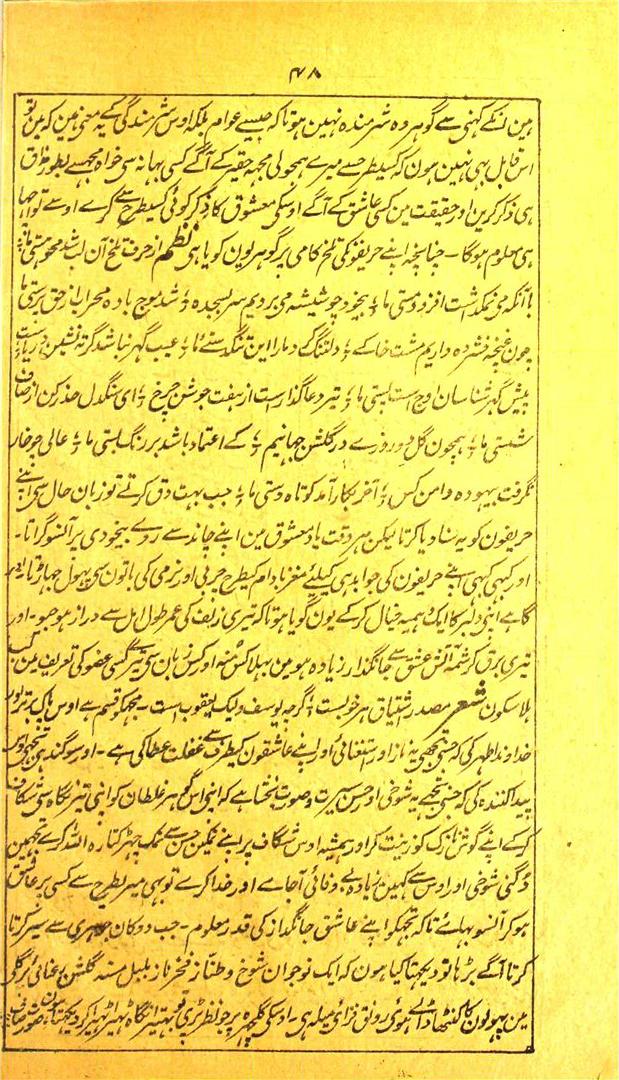 ۴۸
مین انکے کہنی سے گوہر دہ شرمندہ نہین ہوتا کہ جیسے عوام بلکہ اوس شرمندگی کے یہ معنی ہین کہ مین تو
اس قابل بہی نہین ہون کہ کسیطرحسے میرے ہمجولی مجہہ حقیر کے آگے کسی بہانہ سی خواہ مجہسے بطور مذاق
ہی ذکر کرین اور حقیقت مین کسی عاشق کے آگے اوسکی معشوق کا ذکر کوئی کسیطرح سے کرے اوسے تو اچہا
ہی معلوم ہوگا۔ چنانچہ اپنے حریفونکی تلخ کامی پر گوہریون گویا ہی نظم از حرف تلخ آن لب شد محو مستی ما
با آنکہ می نمکداشت افزود مستی ما ؛ بیخود چو شیشہ می بردیم سر بسجدہ ؛ شد موج بادہ محراب از حق پرستی ما
چون غنچہ فشردہ داریم مشت خاکے ؛ دلتنگ کرد مارا این تنگدستے ما ؛ عیب گہر نباشد گر تہ نشین دریاست
پیش گہر شناسان اوج است پستی ما ؛ تیر دعا گذارا است از ہفت جوشن چرخ ؛ ای سنگدل حذر کن از صاف
شستی ما ؛ ہمچون گل دوروزے در گلشن جہانیم ؛ کے اعتماد باشد بر رنگ بستی ما ؛ عالی چو خار
نگرفت بیہودہ دامن کس ؛ آخر بکار آمد کوتاہ دستی ما ؛ جب بہت دق کرتے تو زبان حال سی اپنے
حریفون کو یہ سنا دیا کرتا لیکن ہر وقت یاد معشوق مین اپنے چاند سے روے بیخودی پر آنسو گراتا۔
اور کبہی کبہی اپنے حریفون کی جوابدہی کیلئے مغز بادام کیطرح چربی اور نرمی کی باتون سی پہول جہاڑتا اور
گاہے اپنی دلبر کا ایک وہمیہ خیال کر کے یون گویا ہوتا کہ تیری زلف کی عمر طول امل سے دراز ہو جیو۔ اور
تیری برق کرشمہ آتش عشق سے جانگداز زیادہ ہو مین بہلا کس منہ اور کس زبان سی تیرے کسی عضو کی تعریف مین لب
ہلا سکون شعر مصدر اشتیاق ہر خوبست ؛ گرچہ یوسف ولیک یعقوب است۔ مجہکو قسم ہے اوس پاک برتر اور
خداوند اطہر کی کہ جسنی تجہی یہ ناز اور استغنائی اور اپنے عاشقون کیطرف سے غفلت عطا کی ہے۔ اور سوگند ہی تجہی اوس
پیدا کنندہ کی کہ جسنی تجہے یہ شوخی اور حسن سیرت و صورت بخشا ہے کہ اپنی اس گہر غلطان کو اپنی تیز نگاہ سی شگاف
کر کے اپنے گوش نازک کو زینت کر اور ہمیشہ اوس شگاف پر اپنے نمکین حسن سے نمک چہڑکتا رہ اللہ کرے تجہمین
دُگنی شوخی اور اوس سے کہین زیادہ بے وفائی آجاے اور خدا کرے تو بہی میریطرح سے کسی پر عاشق
ہو کر آنسو بہاے تا کہ تجہکو اپنے عاشق جانگداز کی قدر معلوم۔ جب دوکان جوہری سے سیر کرتا
کرتا آگے بڑہا تو دیکہتا کیا ہون کہ ایک نوجوان شوخ و طناز فخر ناز بلبل مسند گلشن رعنائی گلے
مین پہولون کا کنٹہا ڈالے ہوئی رونق فزای میلہ ہی اوسکی گلچہرہ پر جو نظر پڑی تو بہتیرا نگاہ ٹہیرا ٹہیرا کر دیکہتا ہون